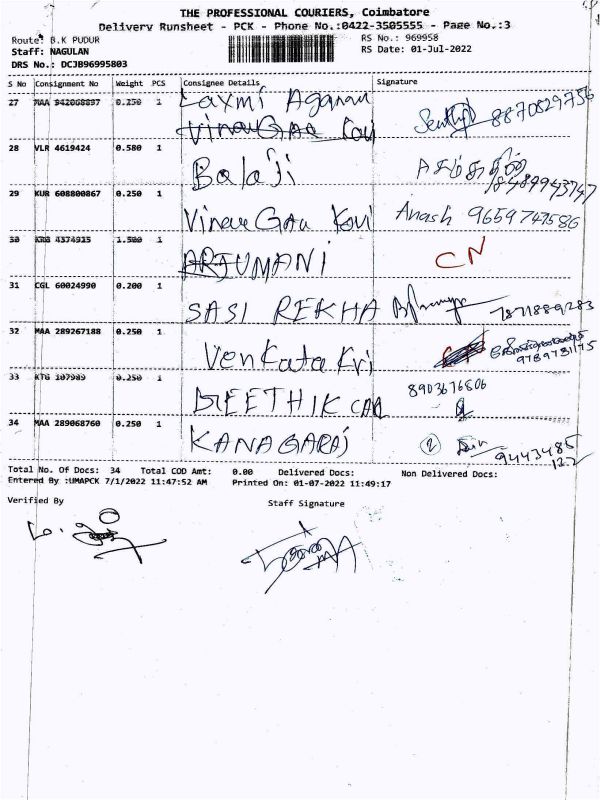 THE PROFESSIONAL COURIERS, Coimbatore
Delivery Runsheet - PCK - Phone No.:0422-3505555 - Page No.:3
Route: B.K PUDUR RS No.: 969958
Staff: NAGULAN RS Date: 01-Jul-2022
DRS No.: DCJB96995803
S No Consignment No Weight PCS Consignee Details Signature
27 MAA 942068897 0.250 1 Laxmi 8870829756
28 VLR 4619424 0.580 1 Balaji
29 KUR 608800867 0.250 1 Anash 9659747586
30 KRG 4374915 1.500 1 ARJUMANI CN
31 CGL 60024990 0.200 1 SASI REKHA 7871889283
32 MAA 289267188 0.250 1 Venkata Kri 9789731175
33 KTG 107989 0.250 1 8903676806
34 MAA 289068760 0.250 1 KANAGARAJ 2 9443485
122
Total No. Of Docs: 34 Total COD Amt: 0.00 Delivered Docs: Non Delivered Docs:
Entered By :UMAPCK 7/1/2022 11:47:52 AM Printed On: 01-07-2022 11:49:17
Verified By Staff Signature